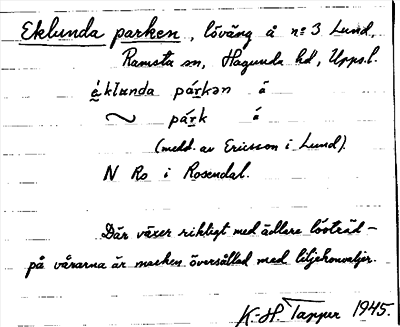 Eklunda parken, löväng å nº 3 Lund,
Ramsta sn, Hagunda hd, Upps.l.
ék̬lunda párkən á
~ párk á
(medd. av Ericsson i Lund).
N Ro i Rosendal.
Där växer rikligt med ädlare lövträd –
på vårarna är marken översållad med liljekonvaljer.
K.-H. Tapper 1945.